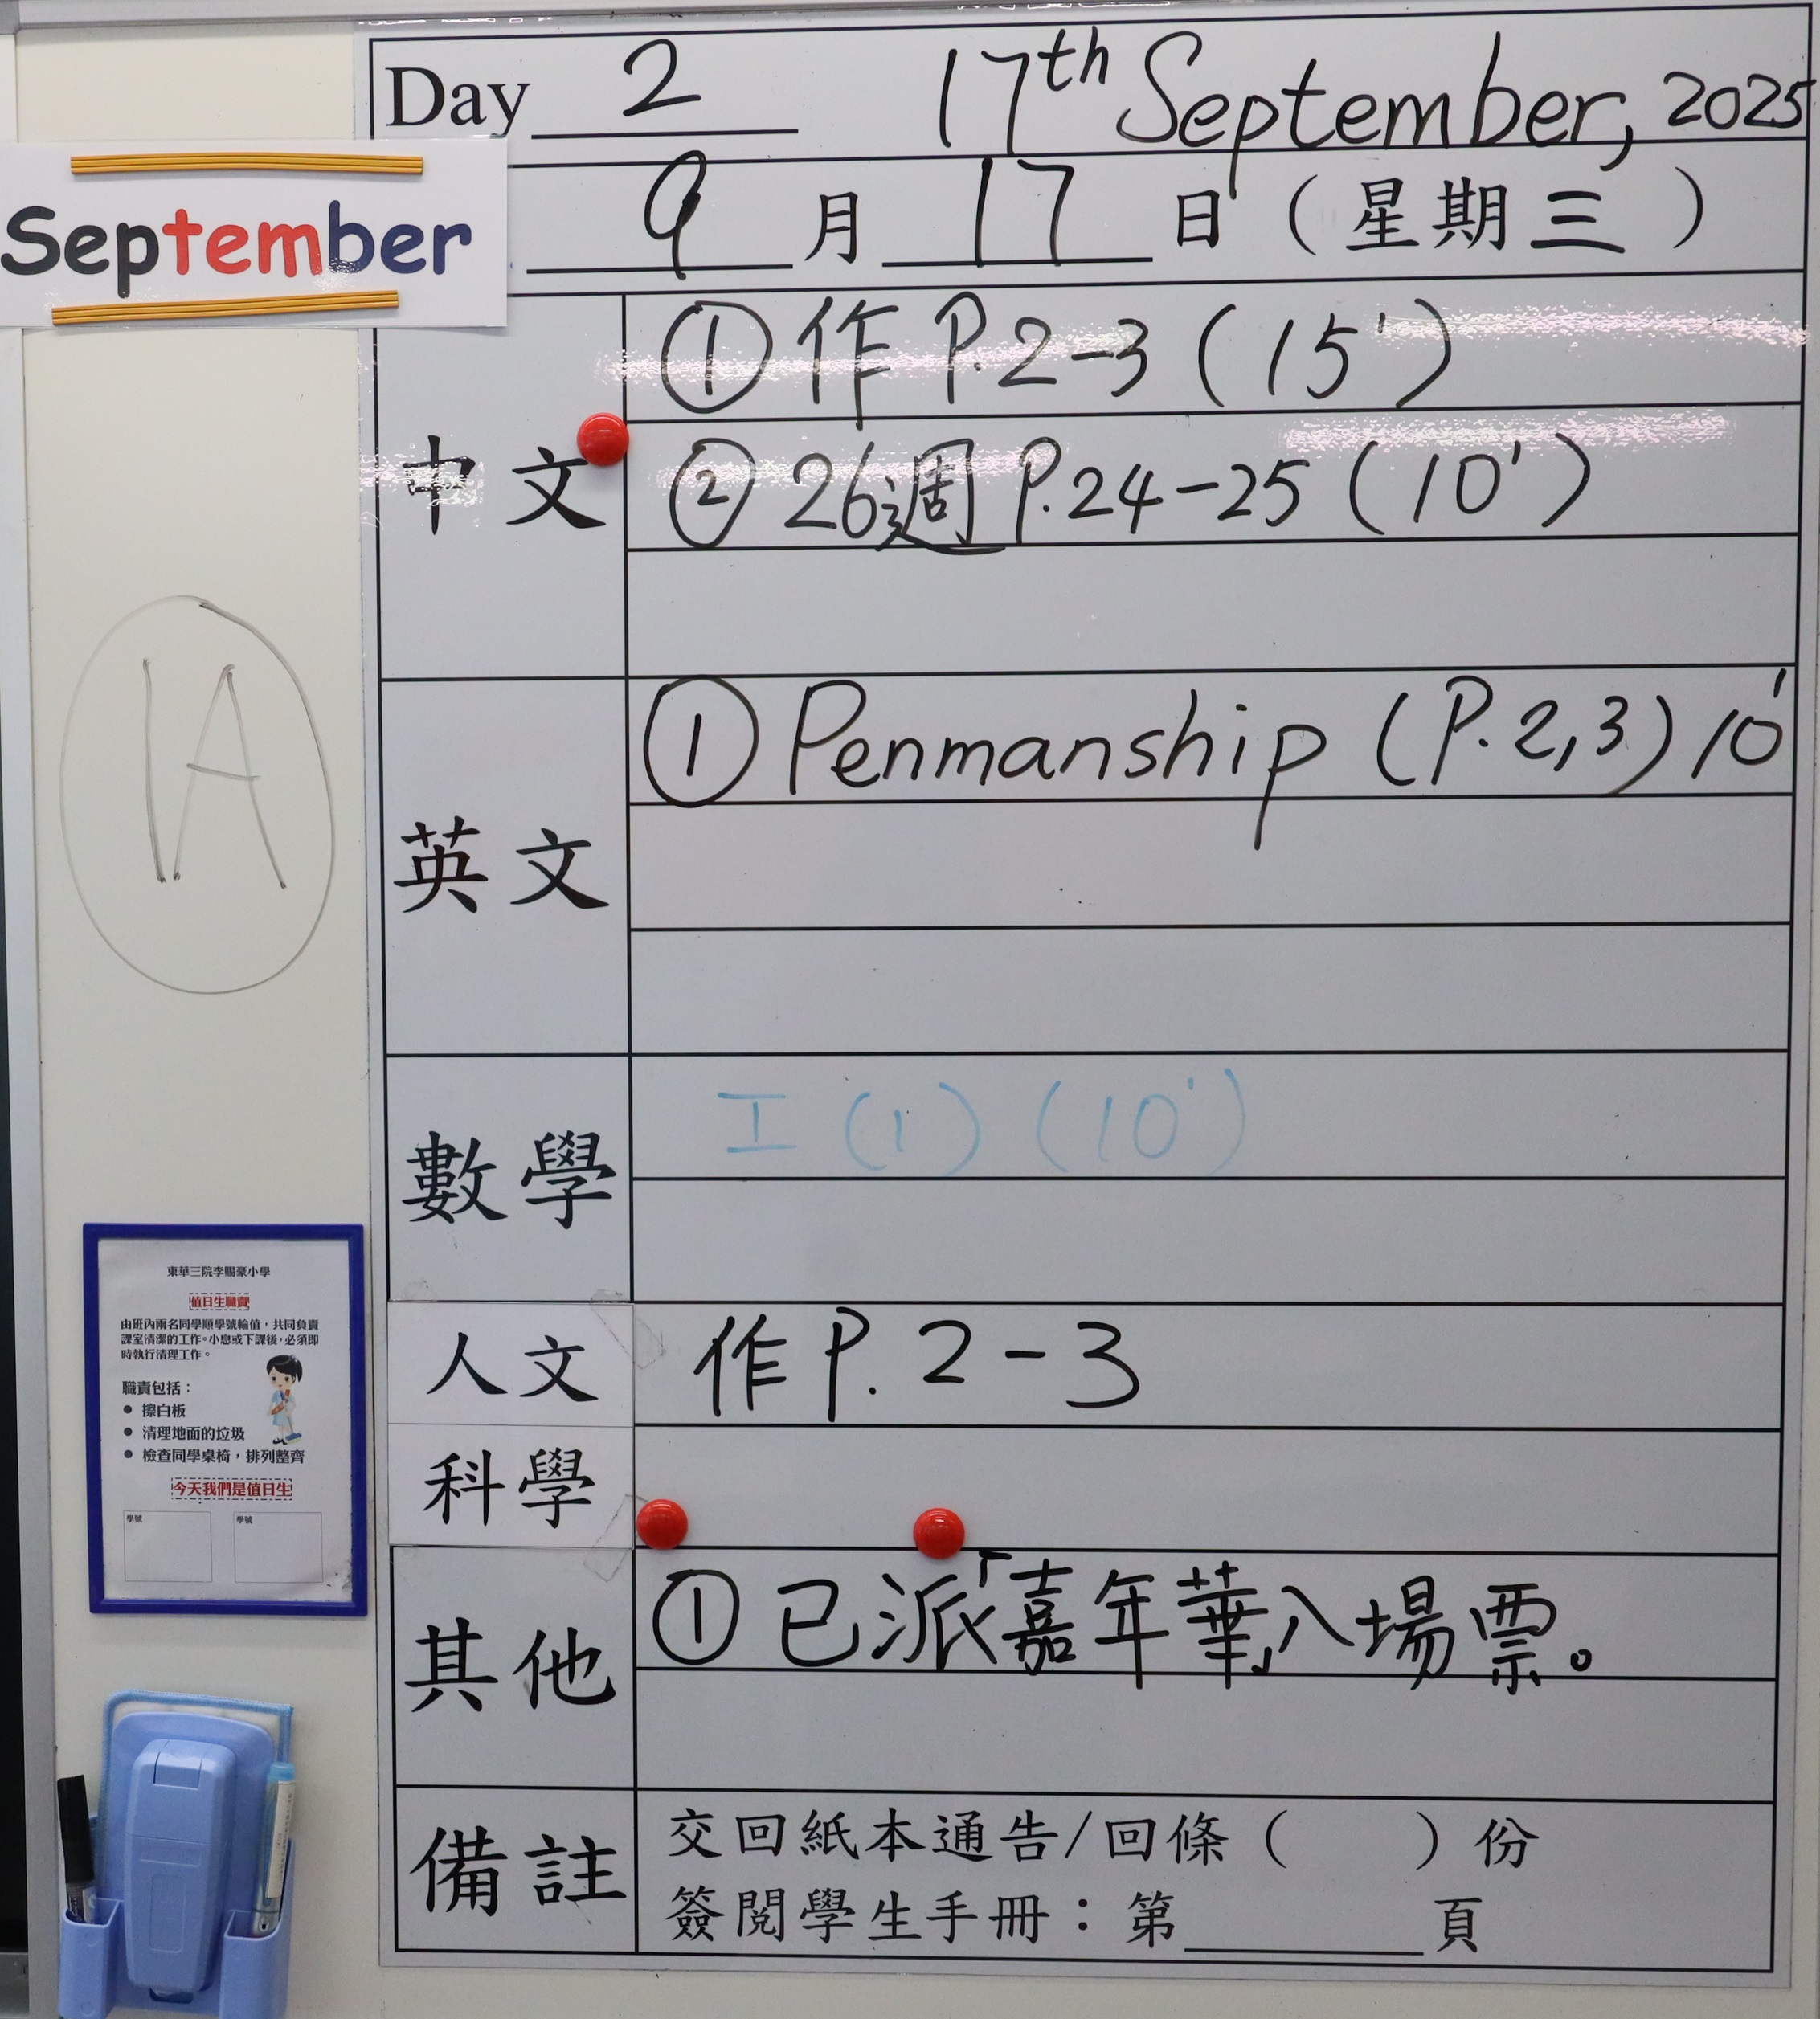 Day 2 17th September, 2025
September
9 月 17 日 ( 星期三 )
中文
① 作 P.2-3 ( 15' )
② 26週 P.24-25 ( 10' )
1A
英文
① Penmanship (P.2,3) 10'
數學
工 (1) (10')
人文
作 P. 2-3
科學
其他
① 已派「嘉年華」入場票。
備註
交回紙本通告/回條 ( ) 份
簽閱學生手冊:第________頁
東華三院李賜豪小學
值日生職責
由班內兩名同學順學號輪值,共同負責
課室清潔的工作。小息或下課後,必須即
時執行清理工作。
職責包括:
● 擦白板
● 清理地面的垃圾
● 檢查同學桌椅,排列整齊
今天我們是值日生
學號 學號